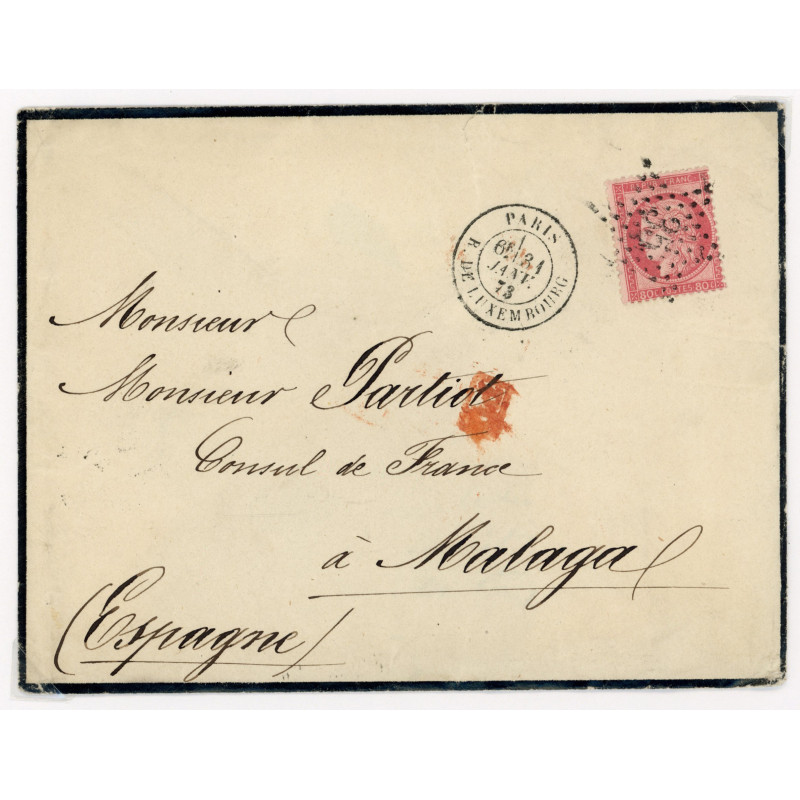 RÉPUB. FRANC.
80 CENTIMES 80
PARIS
1
6E 31
JANV.
73
R. DE LUXEMBOURG
Monsieur
Monsieur Partiot
Consul de France
à Malaga
(Espagne)